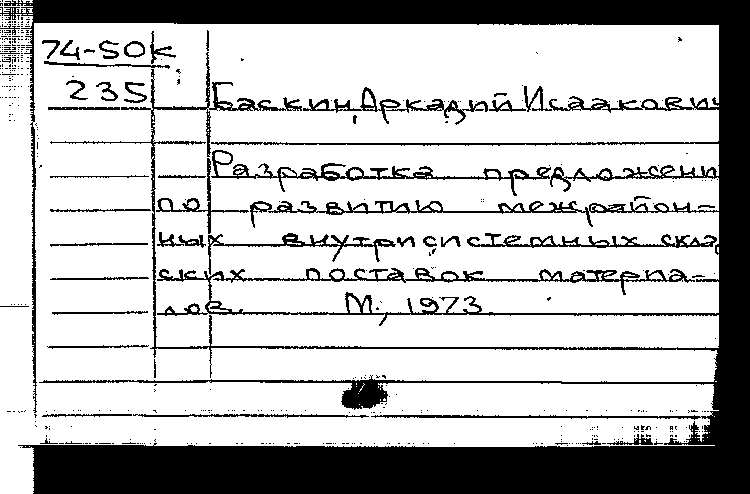 74-50к
235
Баскин, Аркадий Исаакович
Разработка предложени
по развитию межрайон-
ных внутрисистемных скла
ских поставок материа-
лов. М., 1973